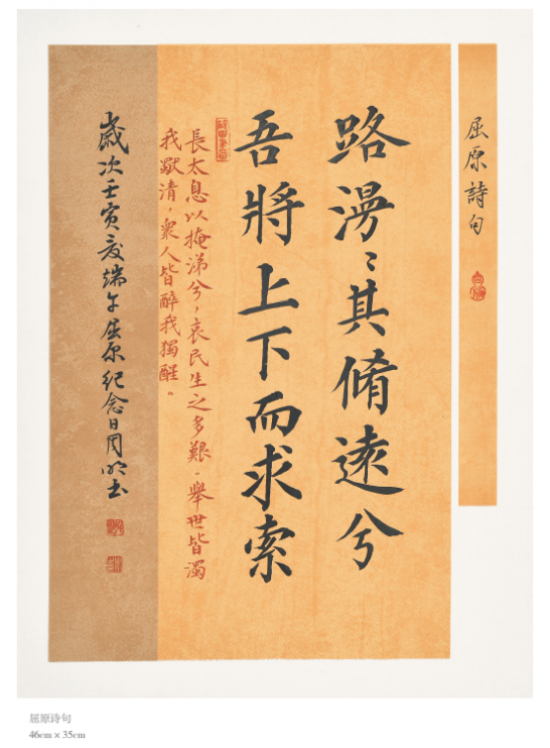 屈原詩句
路漫〻其脩遠兮
吾將上下而求索
長太息以掩涕兮，哀民生之多艱。舉世皆濁
我歇清，衆人皆醉我獨醒。
歲次壬寅夏端午屈原纪念日周明书
屈原诗句
46cm × 35cm